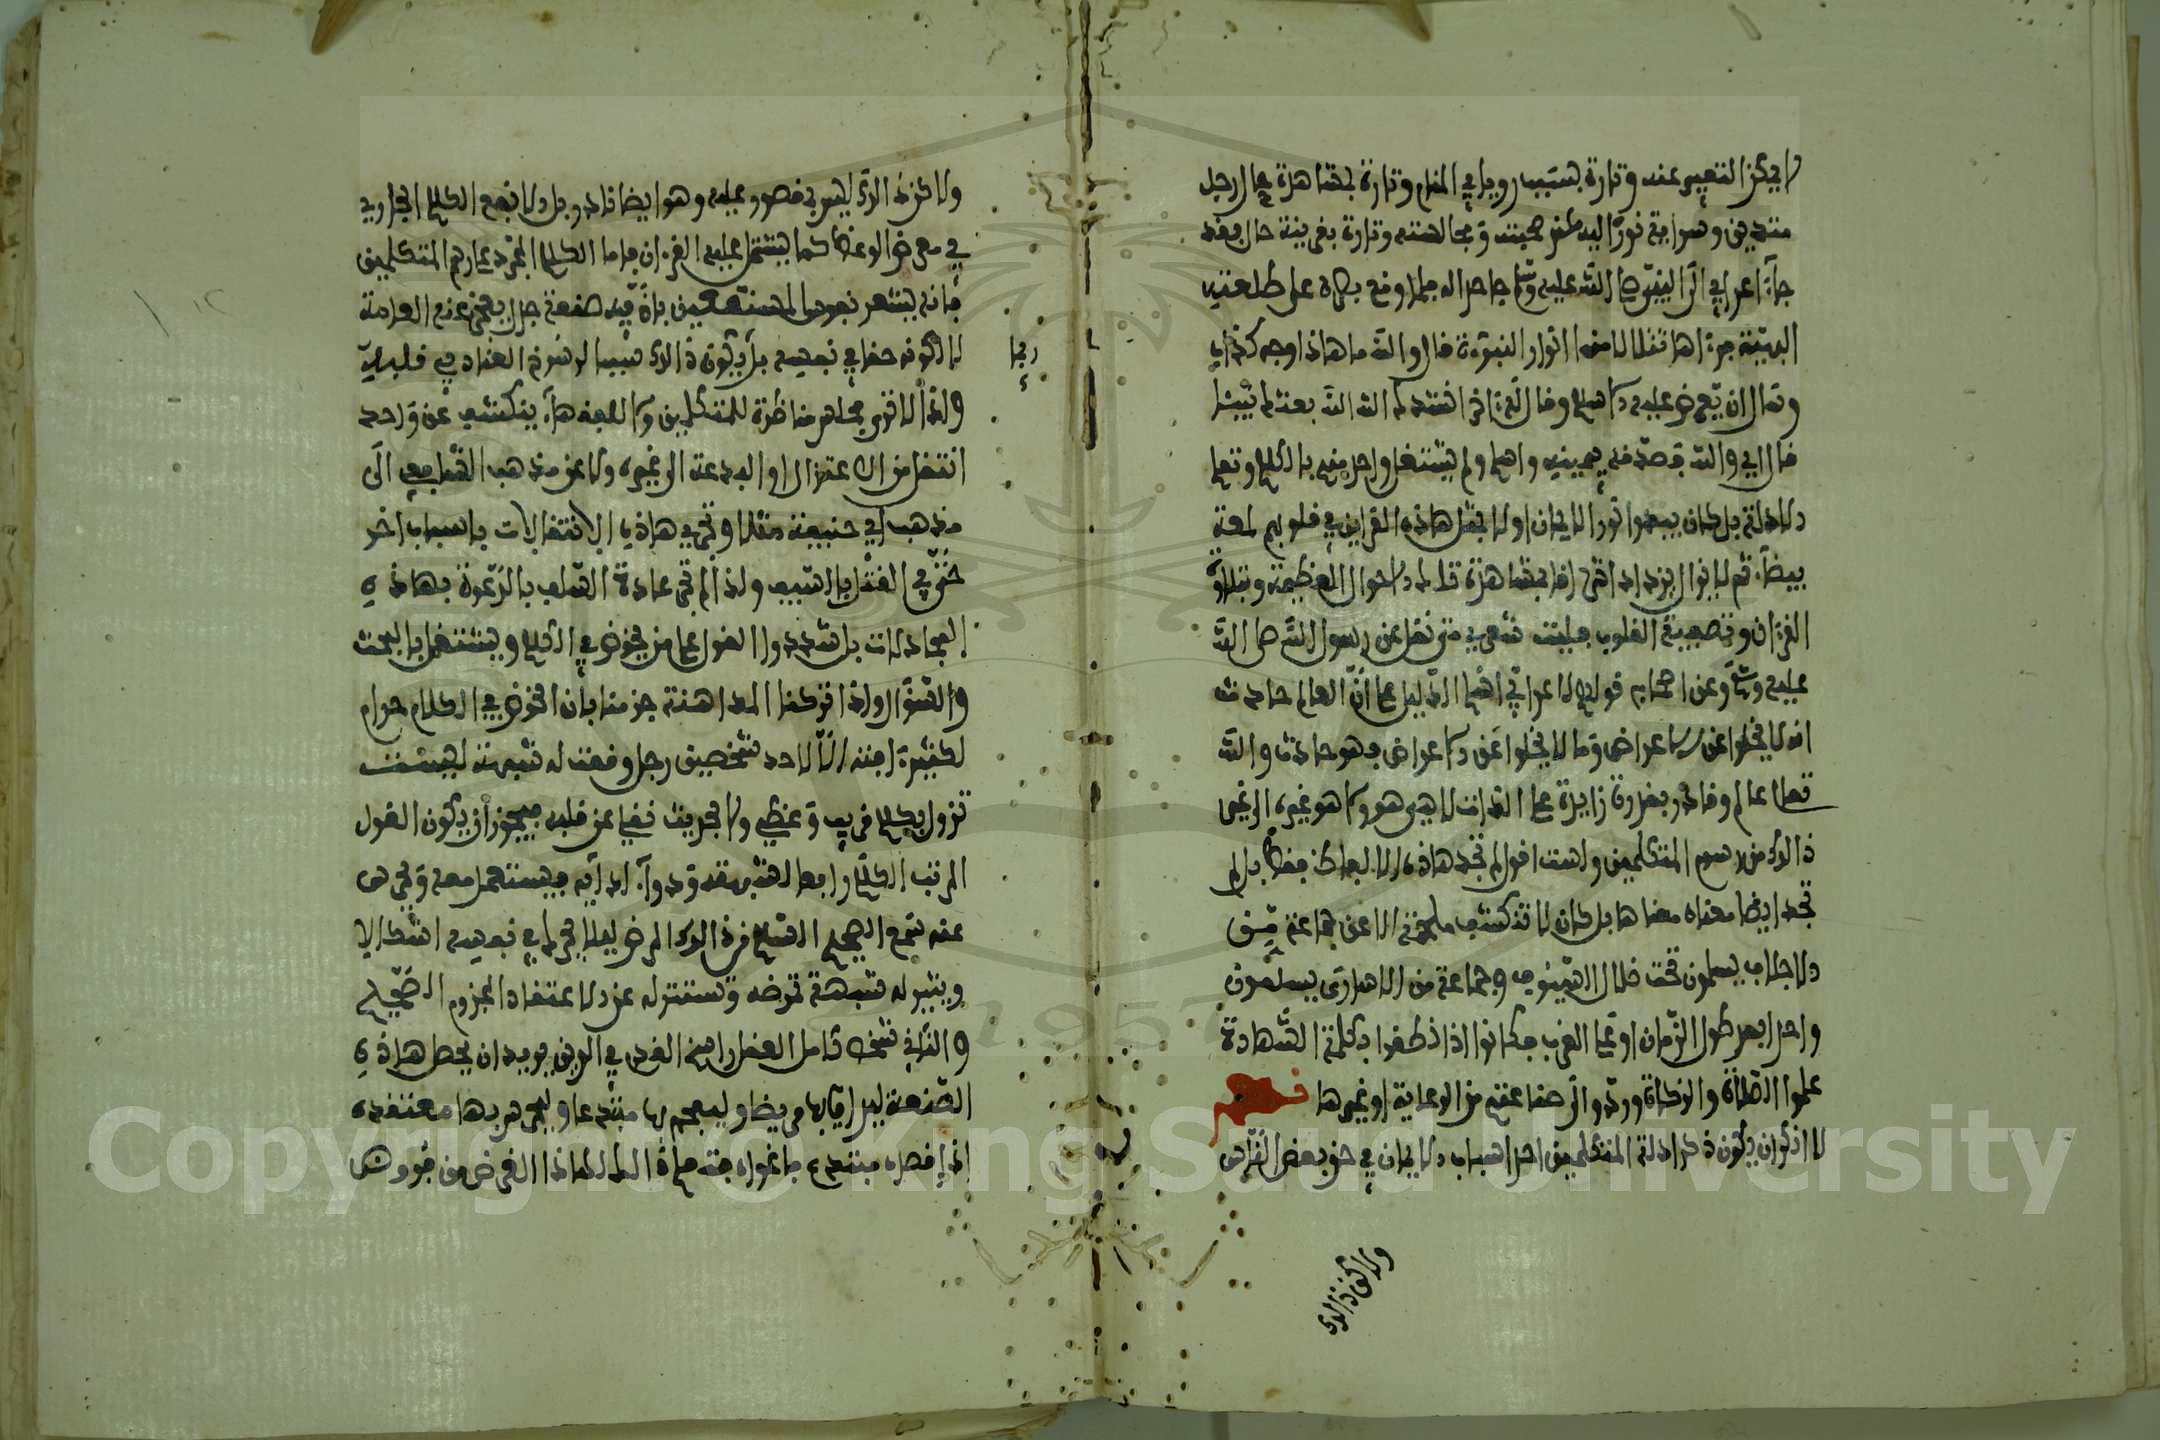 لا يمكن التعبير عنه وتارة بسبب رويا في المنام وتارة بمشاهدة حال رجل
متدين وسراية نوره اليه عند صحبته ومجالسته وتارة بقرينة حال فقد
جاء اعرابي الى النبي صلى الله عليه وسلم جاحدا له فلما وقع بصره على طلعته
البهية فرءاها تتلالا منها انوار النبوءة قال والله ما هاذا وجه كذاب
وسال ان يعرض عليه الاسلام وقال ءاخر انشدك الله الله بعثك نبيئا
قال اي والله فصدقه بيمينه واسلم ولم يشتغل واحد منهم بالكلام وتعلم
الادلة بل كان يبدوا نور الايمان اولا بمثل هاذه القراين في قلوبهم لمعة
بيضاء ثم لا يزال يزداد اشراقا بمشاهدة تلك الاحوال العظيمة وتلاوة
القرءان وتصفية القلوب فليت شعري متى نقل عن رسول الله صلى الله
عليه وسلم وعن اصحابه قولهم لاعرابي اسلم الدليل على ان العالم حادث
انه لا يخلوا عن الاعراض وما لا يخلوا عن الاعراض فهو حادث والله
تعلى عالم وقادر بقدرة زايدة على الذات لا هي هو ولا هو غيره الى غير
ذالك من رسوم المتكلمين ولست اقول لم تجر هاذه الالفاظ فقط بل لم
تجر ايضا معناه معناها بل كان لا تنكشف ملحمة الا عن جماعة من
الاجلاف يسلمون تحت ظلال السيوف وجماعة من الاسارى يسلمون
واحدا بعد طول الزمان او على القرب فكانوا اذا نطقوا بكلمة الشهادة
علموا الصلاة والزكاة وردوا الى صناعتهم من الرعاية او غيرها نعم
لا انكر ان يكون ذكر ادلة المتكلمين احد اسباب الايمان في حق بعض الناس
ولاكن ذالك
ولاكن ذالك ليس بمقصور عليه وهو ايضا نادر بل الانفع الكلام الجاري
في معرض الوعظ كما يشتمل عليه القرءان فاما الكلام المحرر على رسم المتكلمين
فانه يشعر نفوس المستمعين بان فيه صنعة جدل يعجز عنه العامة
لا لكونه حقا في نفسه بل ربما يكون ذالك سببا لرسوخ العناد في قلبه
ولذا لا ترى مجلس مناظرة للمتكلمين ولا للفقهاء ينكشف عن واحد
انتقل من الاعتزال او البدعة الى غيره ولا عن مذهب الشافعي الى
مذهب ابي حنيفة مثلا وتجري هاذه الانتقالات باسباب اخر
حتى في القتل بالسيف ولذا لم تجر عادة السلف بالدعوة بهاذه
المجادلات بل شددوا القول على من يخوض في الكلام ويشتغل بالبحث
والسوال واذا تركنا المداهنة جزمنا بان الخوض في الكلام حرام
لكثرة افته الا لاحد شخصين رجل وقعت له شبهة ليست
تزول بكلام قريب وعظي ولا بحديث نقلي عن قلبه فيجوز ان يكون القول
المرتب الكلامي رافعا لشبهته ودواء لدايه فيستعمل معه ويحرس
عنه سمع الصحيح السليم من ذالك المرض ليلا يحرك في نفسه اشكالا
ويثير له شبهة تمرضه وتستنزله عن الاعتقاد المجزوم الصحيح
والثاني شخص كامل العقل راسخ القدم في الدين يريد ان يحصل هاذه
الصنعة ليداوي بها مريضا وليفحم بها مبتدعا وليحرس بها معتقده
اذا قصده مبتدع باغوايه فتعلم ذالك لهاذا الغرض من فروض